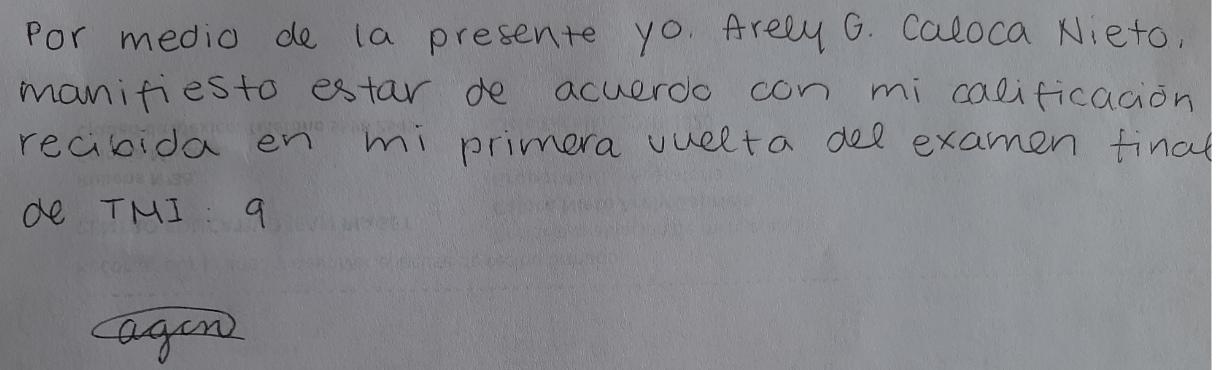 Por medio de la presente yo, Arely G. Caloca Nieto,
manifiesto estar de acuerdo con mi calificación
recibida en mi primera vuelta del examen final
de TMI: 9
agcn